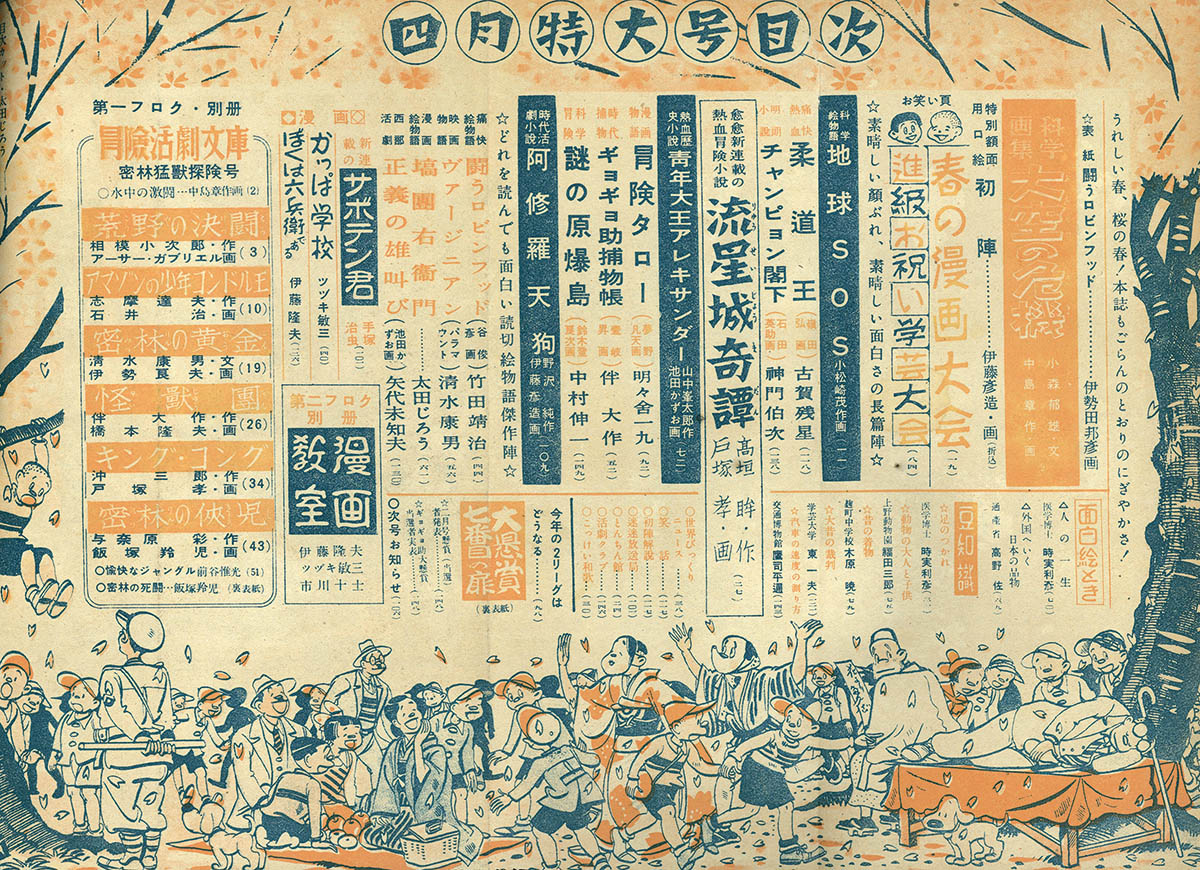 四月特大号目次
うれしい春、桜の春！本誌もごらんのとおりのにぎやかさ！
☆表紙 闘うロビンフッド……伊勢田邦彦画
科学画集 大空の危機 小森郁雄・文 中島章作・画
特別額面用口絵 初陣……伊藤彦造・画（折込）
お笑い頁
春の漫画大会
進級お祝い学芸大会（八四）
☆素晴しい顔ぶれ、素晴しい面白さの長篇陣☆
科学絵物語 地球SOS 小松崎茂作画（一一）
痛快熱血 柔道王 古賀残星
明朗小説 チャンピョン閣下 神門伯次
愈愈新連載の熱血冒険小説 流星城奇譚 高垣眸・作 戸塚孝・画
熱血歴史小説 青年大王アレキサンダー 山中峯太郎作 池田かずお画（七二）
漫画物語 冒険タロー 明々舎一九（九二）
時代捕物 ギョギョ助捕物帳 伴大作（五二）
科学冒険 謎の原爆島 中村伸一
時代活劇小説 阿修羅天狗 野沢純作 伊藤彦造画（一〇九）
☆どれを読んでも面白い読切絵物語傑作陣☆
痛快絵物語 闘うロビンフッド 竹田靖治（一四四）
映画物語 ヴァージニアン（パラマウント）清水康男（五六）
漫画絵物語 塙團右衞門……太田じろう（六一）
西部活劇 正義の雄叫び（池田かずお画）矢代未知夫
◇漫画◇
新連載の サボテン君 手塚治虫
かっぱ学校 ツヅキ敏三
ぼくは六兵衛である 伊藤隆夫
面白絵とき
△人の一生
医学博士 時実利彦
△外国へいく日本の品物
通産省 高野佐
豆知識
☆足のつかれ
医学博士 時実利彦（七九）
☆動物の大人と子供
上野動物園 福田三郎（七九）
麹町中学校 木原暁
☆大昔の裁判
学芸大学 東一夫
☆汽車の速度の測り方
交通博物館 鷹司平通（一四三）
○世界びっくりニュース
○笑話
○初陣解説
○迷迷放送局
○とんちん館
○活劇クラブ
○こっけい和歌
今年の2リーグはどうなる……（九八）
大懸賞 七番目の扉（裏表紙）
☆二月号懸賞（当選者発表）
☆ギョギョ助大懸賞当選者発表
○次号お知らせ
第二フロク別冊
漫画教室
伊藤隆夫
ツヅキ敏三
市川十士
第一フロク・別冊
冒險活劇文庫
密林猛獣探険号
○水中の激闘…中島章作画（2）
荒野の決闘
相模小次郎・作
アーサー・ガブリエル画（3）
アマゾンの少年コンドル王
志摩達夫・作
石井治・画（10）
密林の黄金
清水康男・文
伊勢良夫・画（19）
怪獣團
伴大作・作
橋本隆夫・画（26）
キング・コング
沖三郎・作
戸塚孝・画（34）
密林の侠児
与奈原彩・作
飯塚羚児・画（43）
○愉快なジャングル 前谷惟光（51）
○密林の死闘…飯塚羚児（裏表紙）